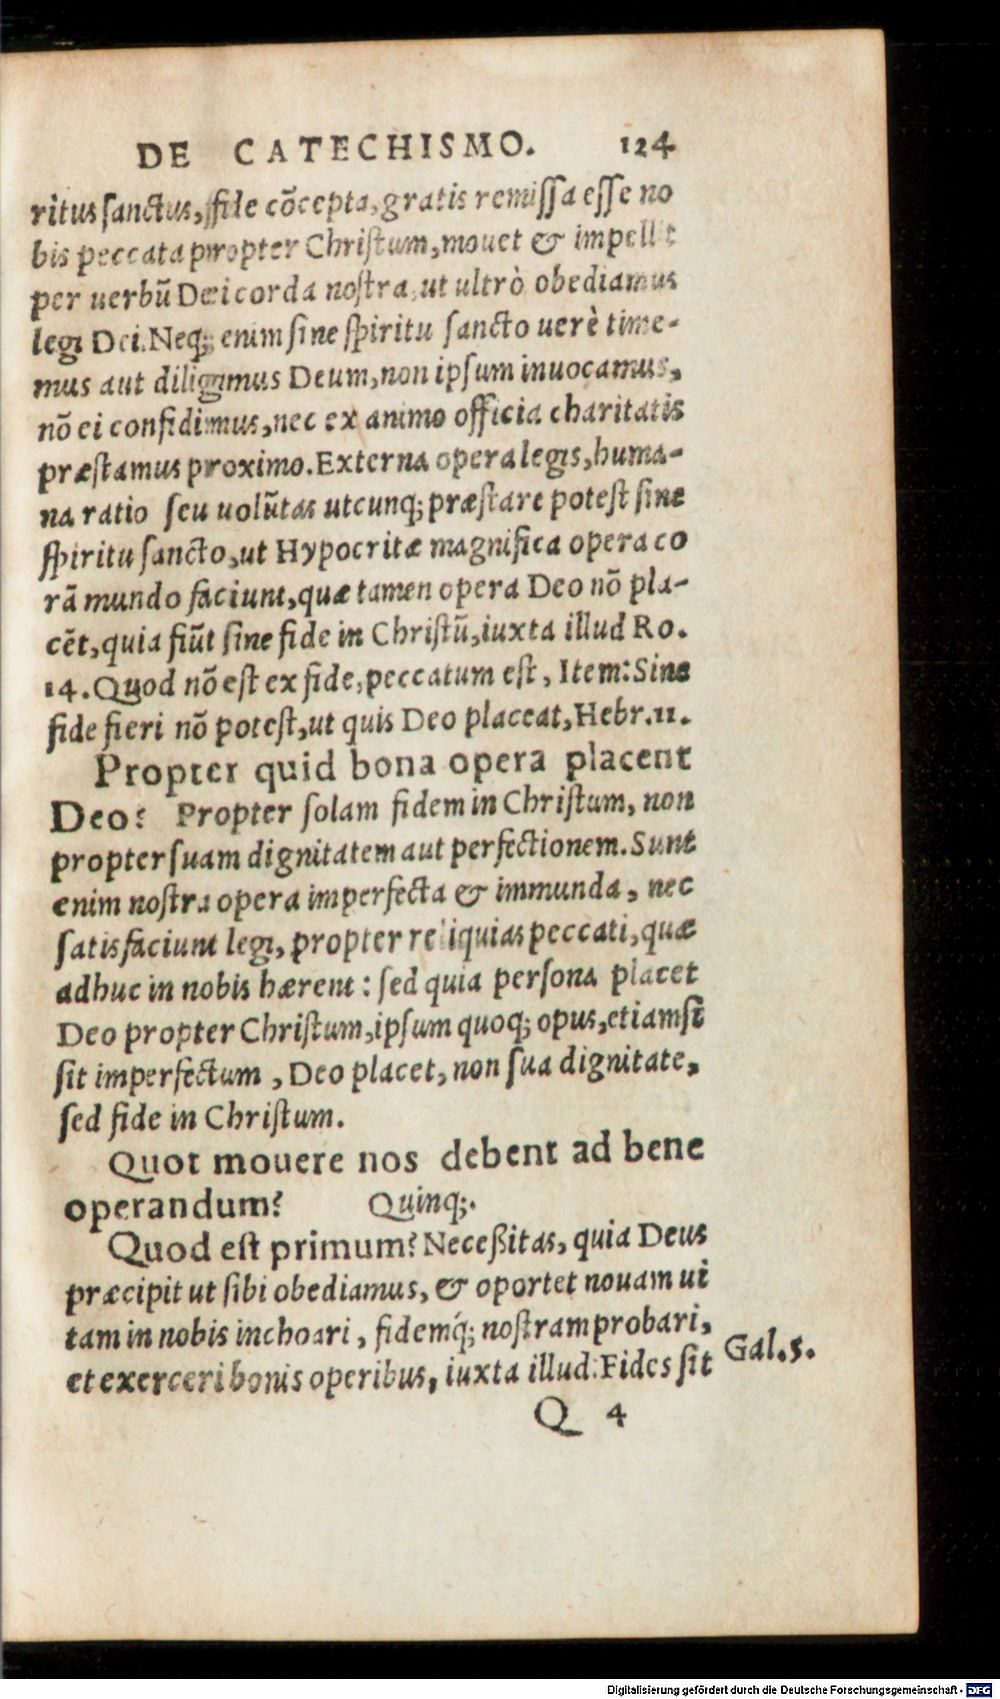 DE CATECHISMO. 124
ritus sanctus, fide cõcepta, gratis remissa esse no
bis peccata propter Christum, mouet & impellit
per uerbũ Dei corda nostra, ut ultrò obediamus
legi Dei. Neq; enim sine spiritu sancto uerè time-
mus aut diligimus Deum, non ipsum inuocamus,
nõ ei confidimus, nec ex animo officia charitatis
præstamus proximo. Externa opera legis, huma-
na ratio seu uolũtas utcunq; præstare potest sine
spiritu sancto, ut Hypocritæ magnifica opera co
rã mundo faciunt, quæ tamen opera Deo nõ pla-
cẽt, quia fiũt sine fide in Christũ, iuxta illud Ro.
14. Quod nõ est ex fide, peccatum est, Item: Sine
fide fieri nõ potest, ut quis Deo placeat, Hebr. 11.
Propter quid bona opera placent
Deo? Propter solam fidem in Christum, non
propter suam dignitatem aut perfectionem. Sunt
enim nostra opera imperfecta & immunda, nec
satisfaciunt legi, propter reliquias peccati, quæ
adhuc in nobis hærent: sed quia persona placet
Deo propter Christum, ipsum quoq; opus, etiamsi
sit imperfectum, Deo placet, non sua dignitate,
sed fide in Christum.
Quot mouere nos debent ad bene
operandum? Quinq;.
Quod est primum? Neceßitas, quia Deus
præcipit ut sibi obediamus, & oportet nouam ui
tam in nobis inchoari, fidemq́; nostram probari,
et exerceri bonis operibus, iuxta illud: Fides sit
Gal. 5.
Q 4
Digitalisierung gefördert durch die Deutsche Forschungsgemeinschaft - DFG